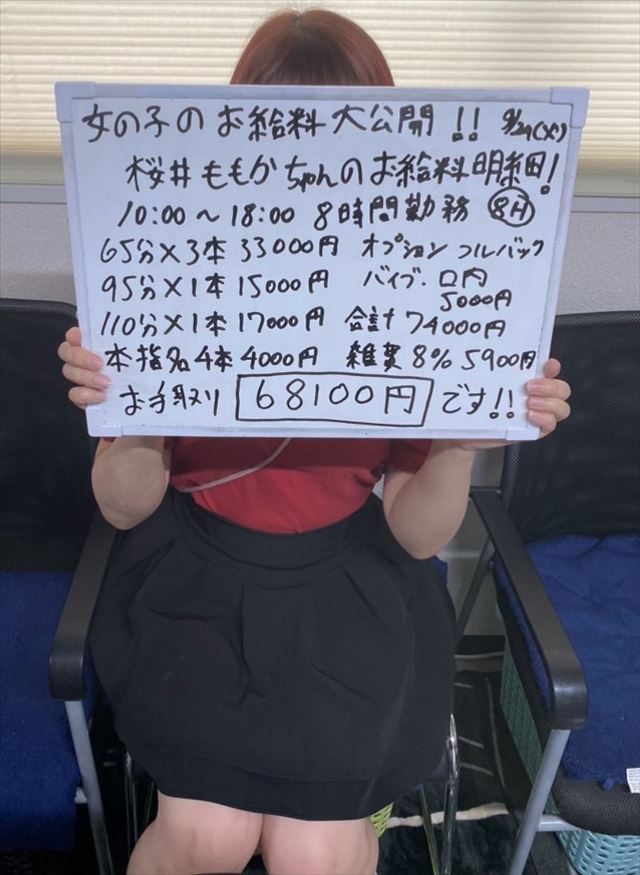 女の子のお給料大公開!! 9/24(火)
桜井ももかちゃんのお給料明細!
10:00～18:00 8時間勤務 8H
65分×3本 33000円 オプションフルバック
95分×1本 15000円 バイブ.口内
5000円
110分×1本 17000円 合計 74000円
本指名4本 4000円 雑費8% 5900円
お手取り 68100円 です!!